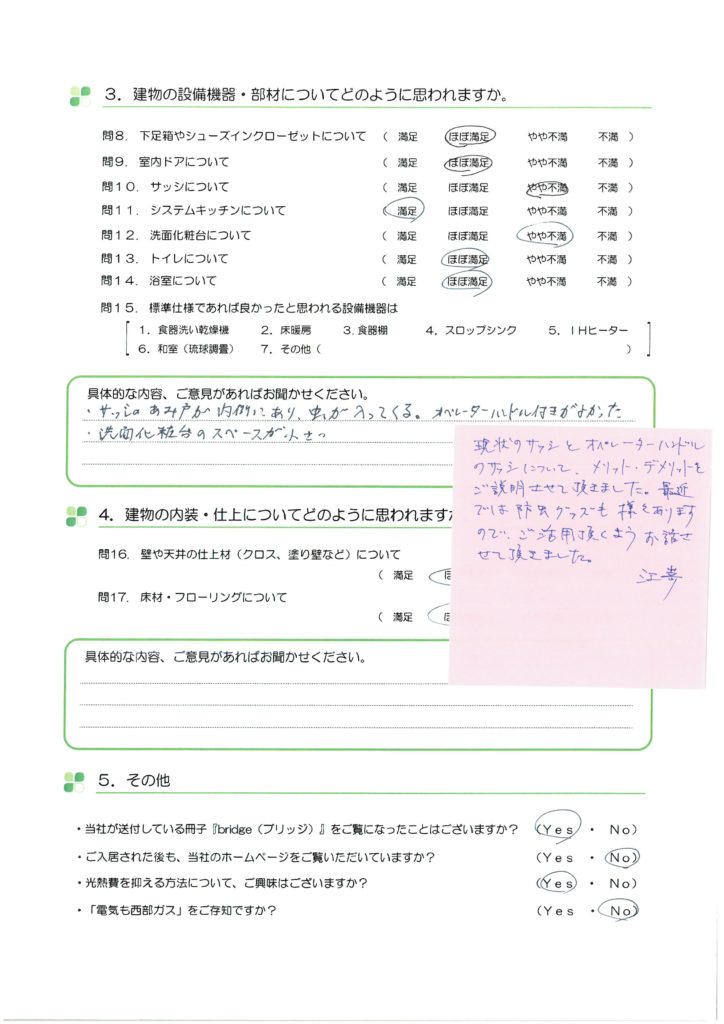 3．建物の設備機器・部材についてどのように思われますか。
問8．下足箱やシューズインクローゼットについて （ 満足 ほぼ満足 やや不満 不満 ）
問9．室内ドアについて （ 満足 ほぼ満足 やや不満 不満 ）
問10．サッシについて （ 満足 ほぼ満足 やや不満 不満 ）
問11．システムキッチンについて （ 満足 ほぼ満足 やや不満 不満 ）
問12．洗面化粧台について （ 満足 ほぼ満足 やや不満 不満 ）
問13．トイレについて （ 満足 ほぼ満足 やや不満 不満 ）
問14．浴室について （ 満足 ほぼ満足 やや不満 不満 ）
問15．標準仕様であれば良かったと思われる設備機器は
1．食器洗い乾燥機 2．床暖房 3.食器棚 4．スロップシンク 5．IHヒーター
6．和室（琉球調畳） 7．その他（ ）
具体的な内容、ご意見があればお聞かせください。
・サッシのあみ戸が内側にあり、虫が入ってくる。オペレーターハンドル付きがよかった
・洗面化粧台のスペースが小さっ
現状のサッシとオペレーターハンドル
のサッシについて、メリット・デメリットを
ご説明させて頂きました。最近
では防虫グッズも様々あります
ので、ご活用頂くようお話さ
せて頂きました。
4．建物の内装・仕上についてどのように思われますか
問16．壁や天井の仕上材（クロス、塗り壁など）について
（ 満足 ほ
問17．床材・フローリングについて
（ 満足 ほ
具体的な内容、ご意見があればお聞かせください。
5．その他
・当社が送付している冊子『bridge（ブリッジ）』をご覧になったことはございますか？ （Yes ・ No）
・ご入居された後も、当社のホームページをご覧いただいていますか？ （Yes ・ No）
・光熱費を抑える方法について、ご興味はございますか？ （Yes ・ No）
・「電気も西部ガス」をご存知ですか？ （Yes ・ No）